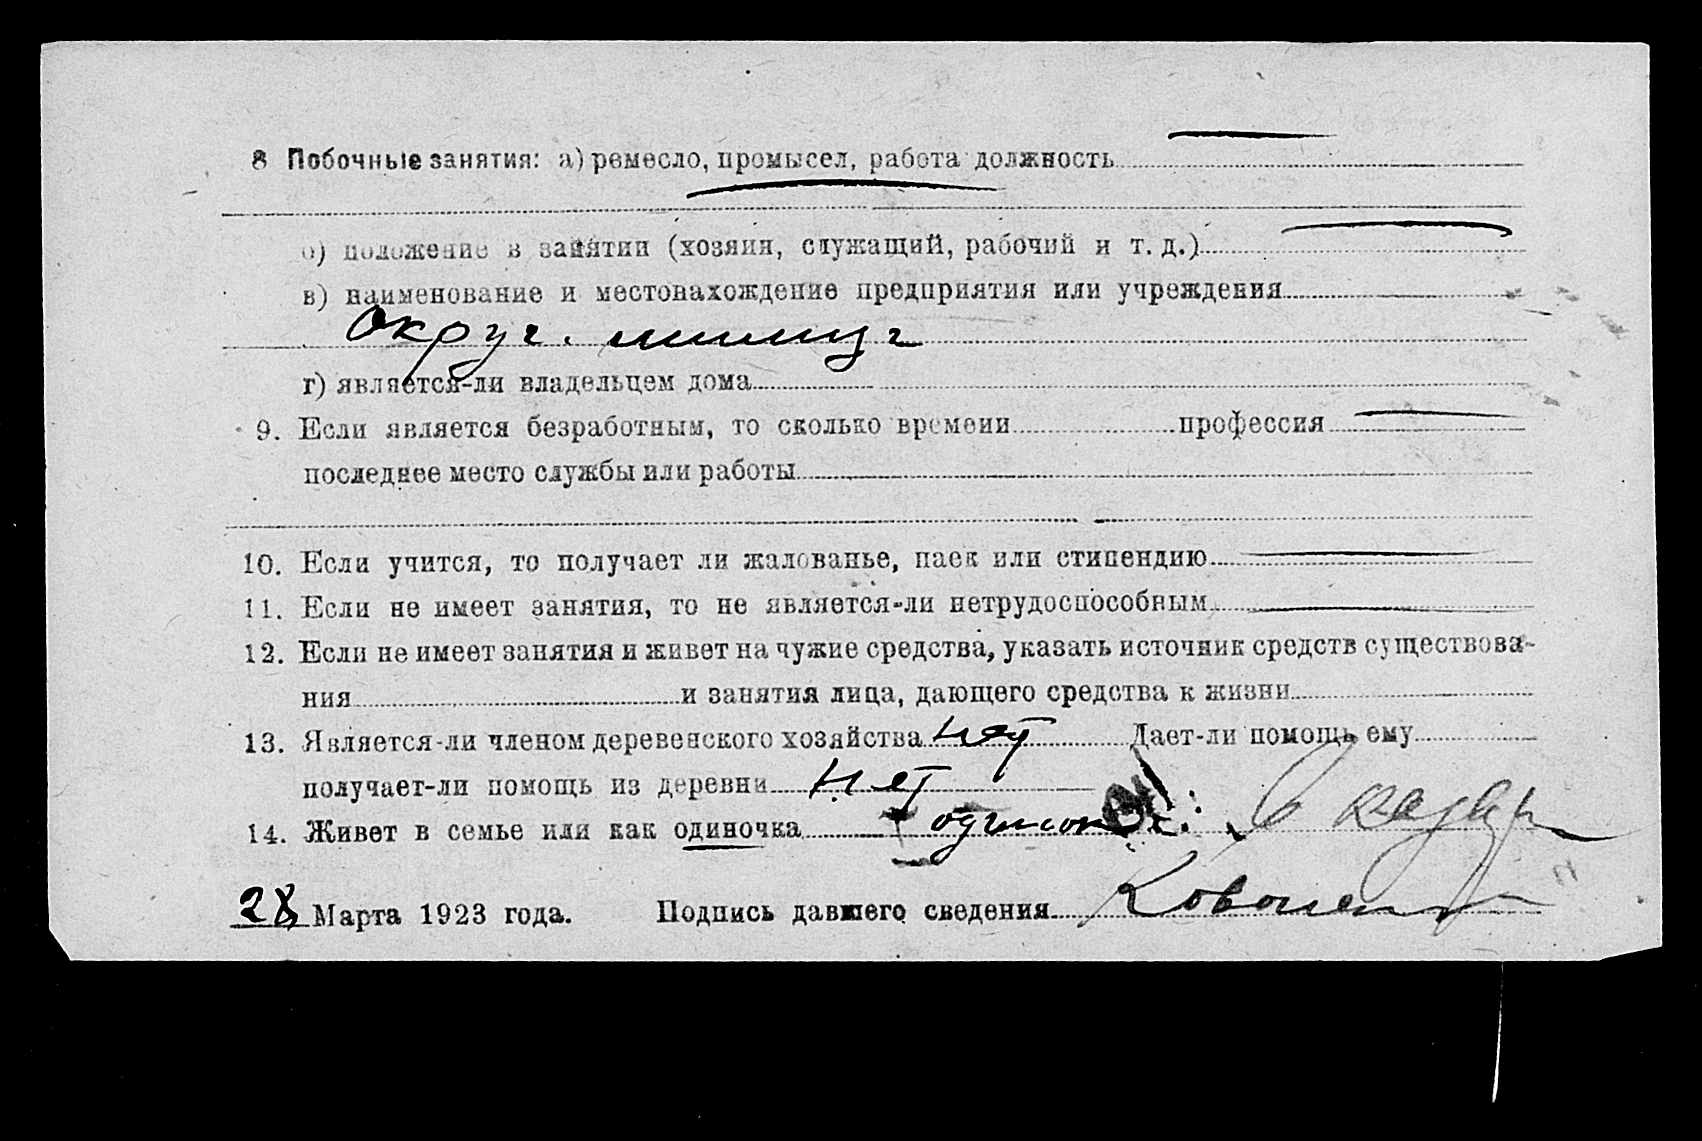 8 Побочные занятия: а) ремесло, промысел, работа должность
б) положение в занятии (хозяин, служащий, рабочий и т. д.)
в) наименование и местонахождение предприятия или учреждения
Окруж. милиц
г) является-ли владельцем дома
9. Если является безработным, то сколько времени профессия
последнее место службы или работы
10. Если учится, то получает ли жалованье, паек или стипендию
11. Если не имеет занятия, то не является-ли нетрудоспособным
12. Если не имеет занятия и живет на чужие средства, указать источник средств существова-
ния и занятия лица, дающего средства к жизни
13. Является-ли членом деревенского хозяйства нет Дает-ли помощь ему
получает-ли помощь из деревни нет
14. Живет в семье или как одиночка
28 Марта 1923 года. Подпись давшего сведения